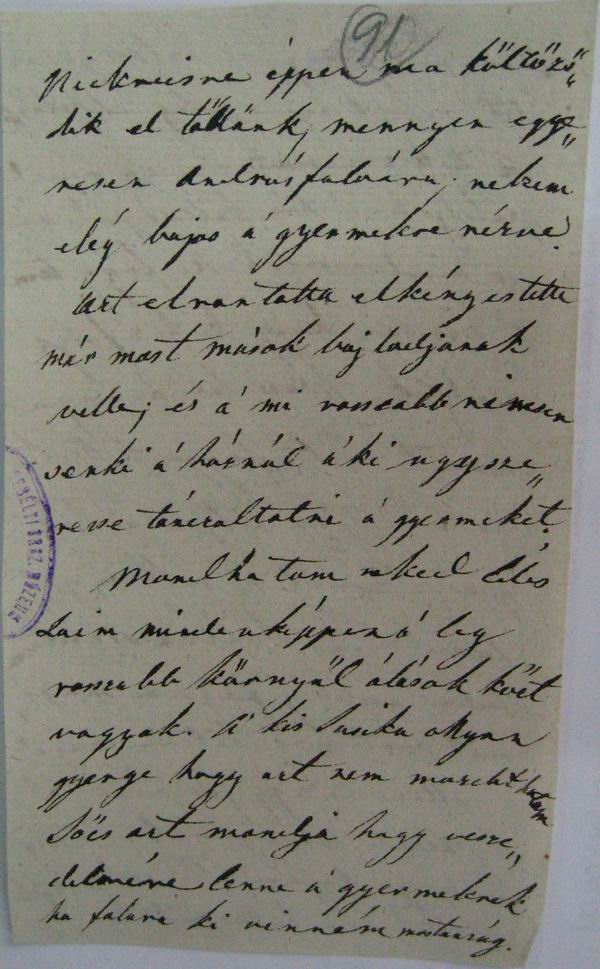 91
éppen ma költöző„
dik el tőllünk, mennyen egye„
nesen Andrásfalvára, nekem
elég bajos á gyermekre nézve.
azt elrontotta elkényestette
már most mások bajlodjanak
velle; és á mi rosszabb nincsen
senki á háznál á ki ugy sze„
resse tánczoltatni á gyermeket.
Mondhatom neked Édes
mindenképpen á leg
rosszabb környűl álások kőzt
vagyok. A kis Susika olyan
gyenge hogy azt nem
Sőcs azt mondja hogy vesze„
delmére lenne á gyermeknek
ha falura ki vinném mostanság.